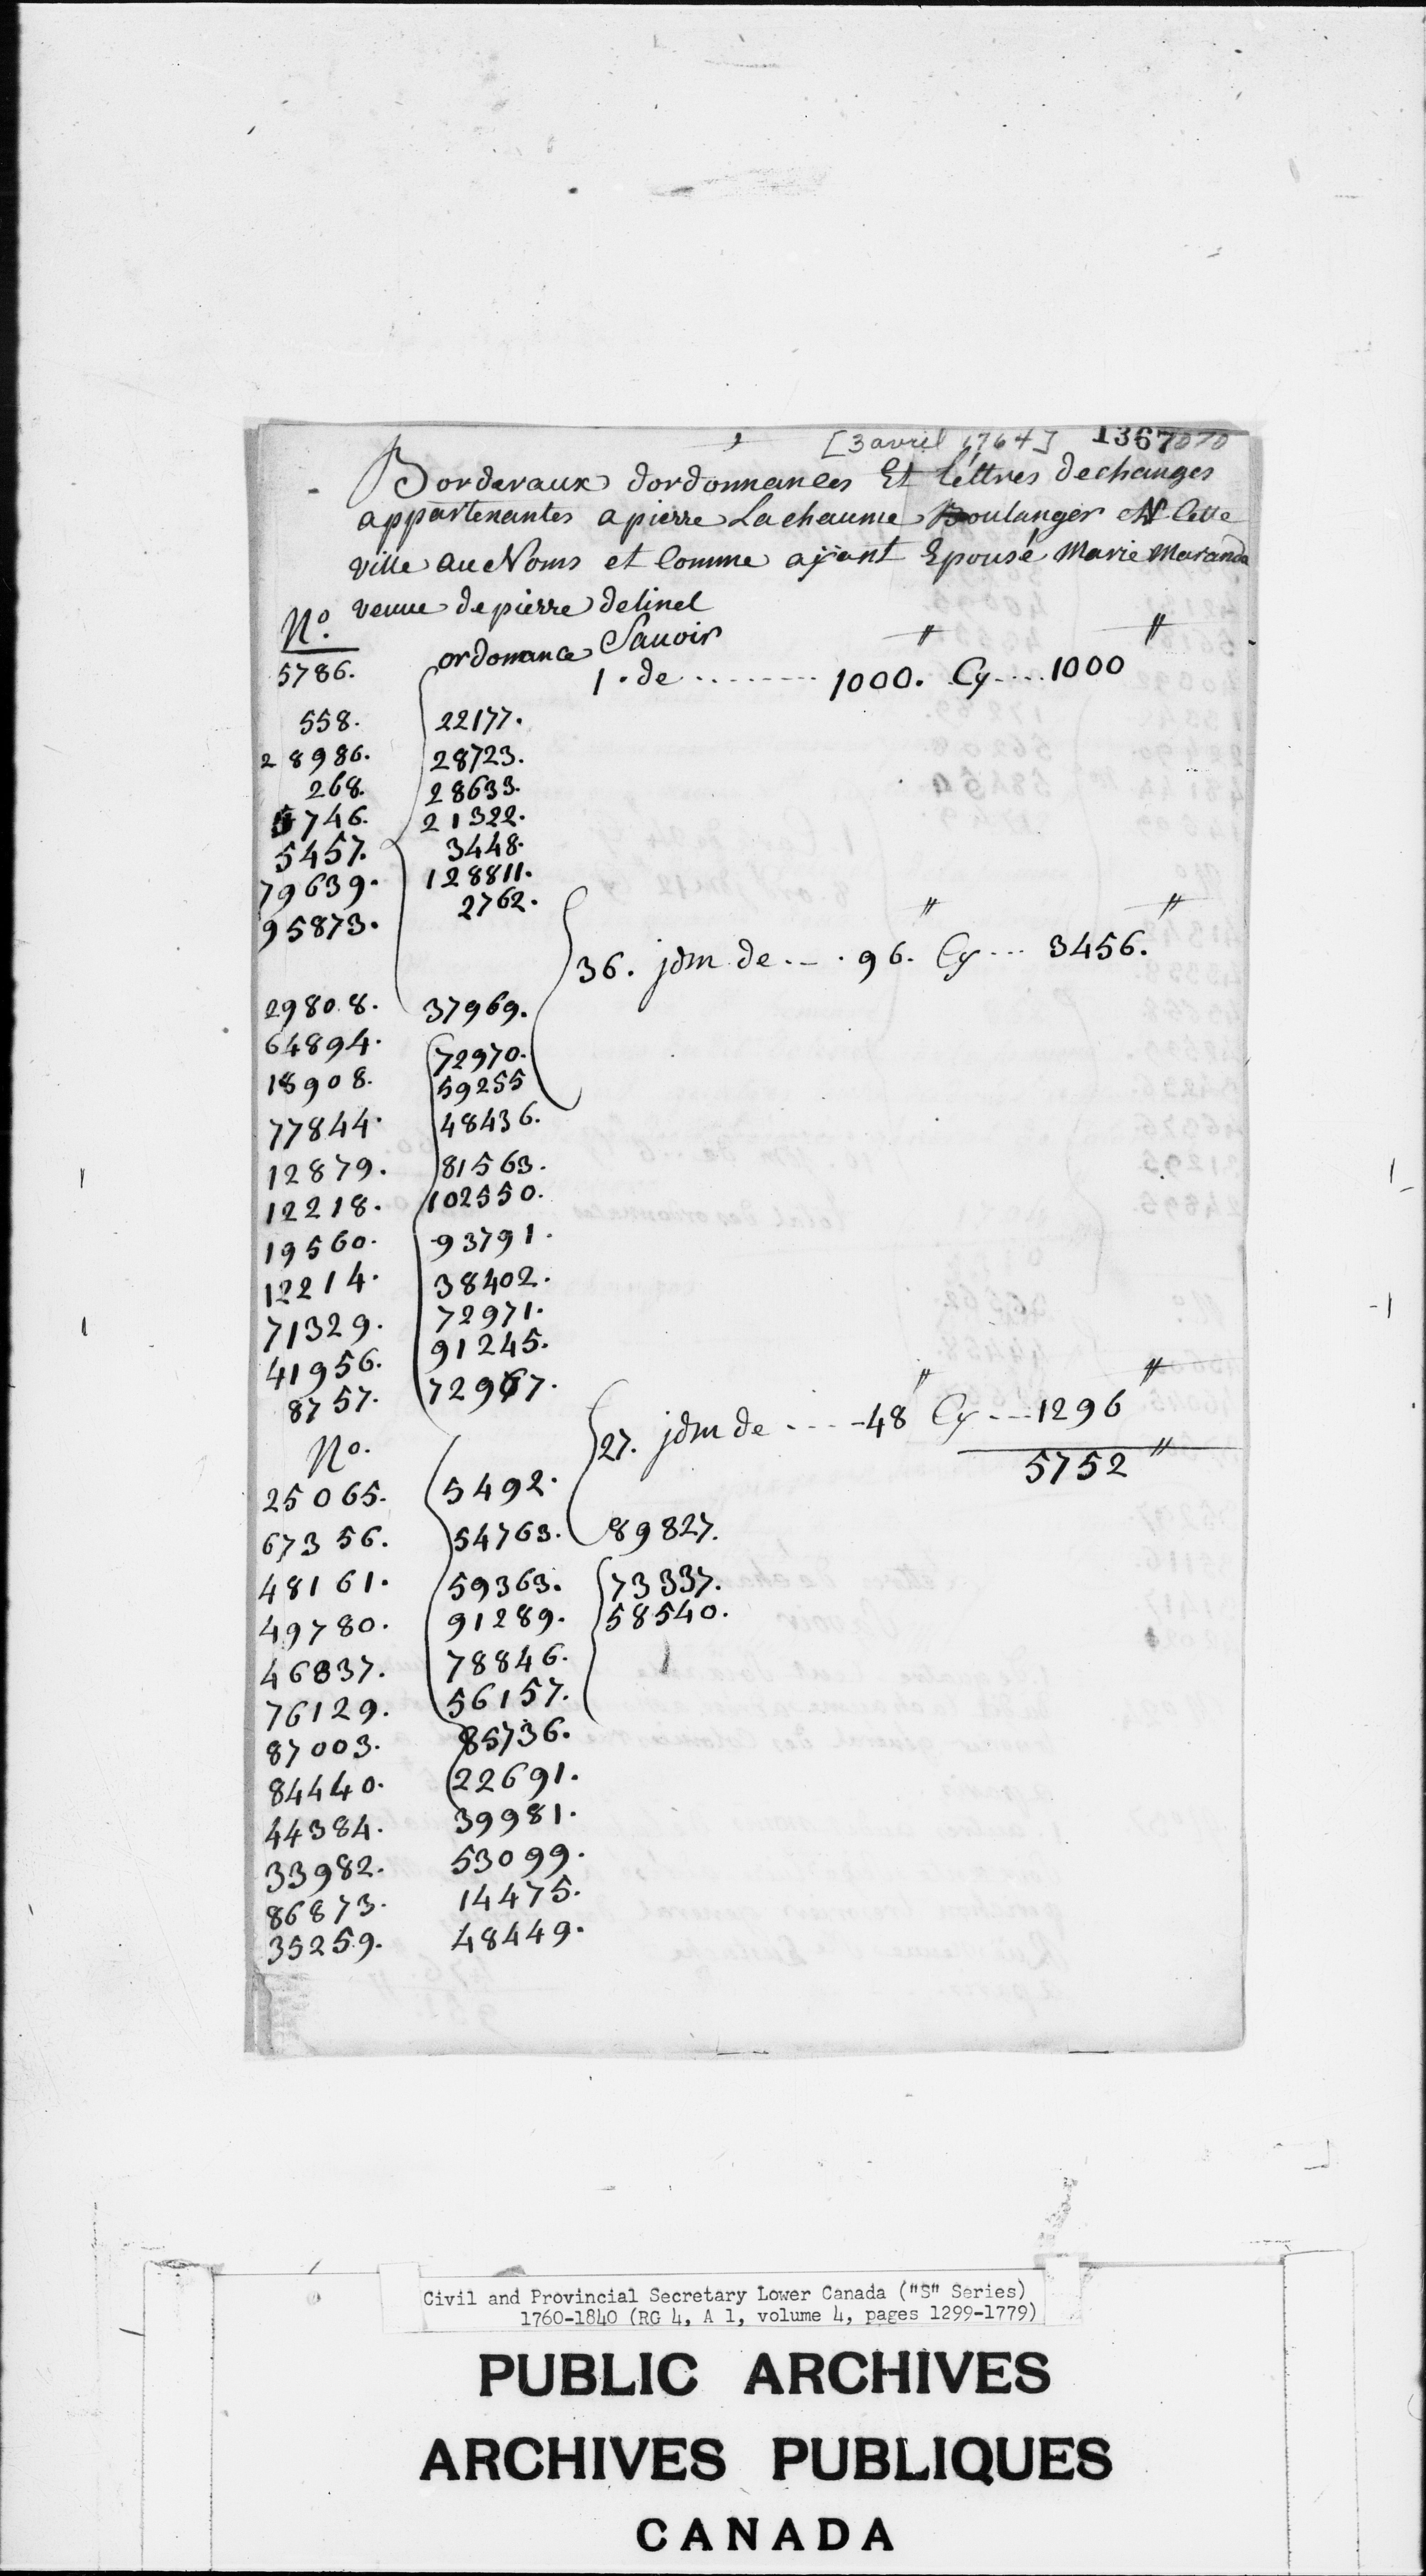 [3 avril 1764] 1367
Borderaux dordonnances Et léttres dechanges
appartenantes a pierre Lachaume Boulanger EN Cette
ville au Noms et Comme ayant Epousé Marie Maranda
veuve de pierre delinel
Sauoir
No. ordonnance
5786. 1. de ......... 1000.″ Cy .... 1000″
558. 22177.
28986. 28723.
268. 28633.
5746. 21322.
5457. 3448.
79639. 128811.
95873. 2762.
36. jdm de .... 96.″ Cy ... 3456.″
29808. 37969.
64894. 72970.
18908. 59255
77844. 48436.
12879. 81563.
12218. 102550.
19560. 93791.
12214. 38402.
71329. 72971.
41956. 91245.
8757. 72967.
27. jdm de .... 48″ Cy ... 1296″
5752″
No.
25065. 5492.
67356. 54763. 89827.
48161. 59363. 73337.
49780. 91289. 58540.
46837. 78846.
76129. 56157.
87003. 85736.
84440. 22691.
44384. 39981.
33982. 53099.
86873. 14475.
35259. 48449.
Civil and Provincial Secretary Lower Canada ("S" Series)
1760-1840 (RG 4, A 1, volume 4, pages 1299-1779)
PUBLIC ARCHIVES
ARCHIVES PUBLIQUES
CANADA